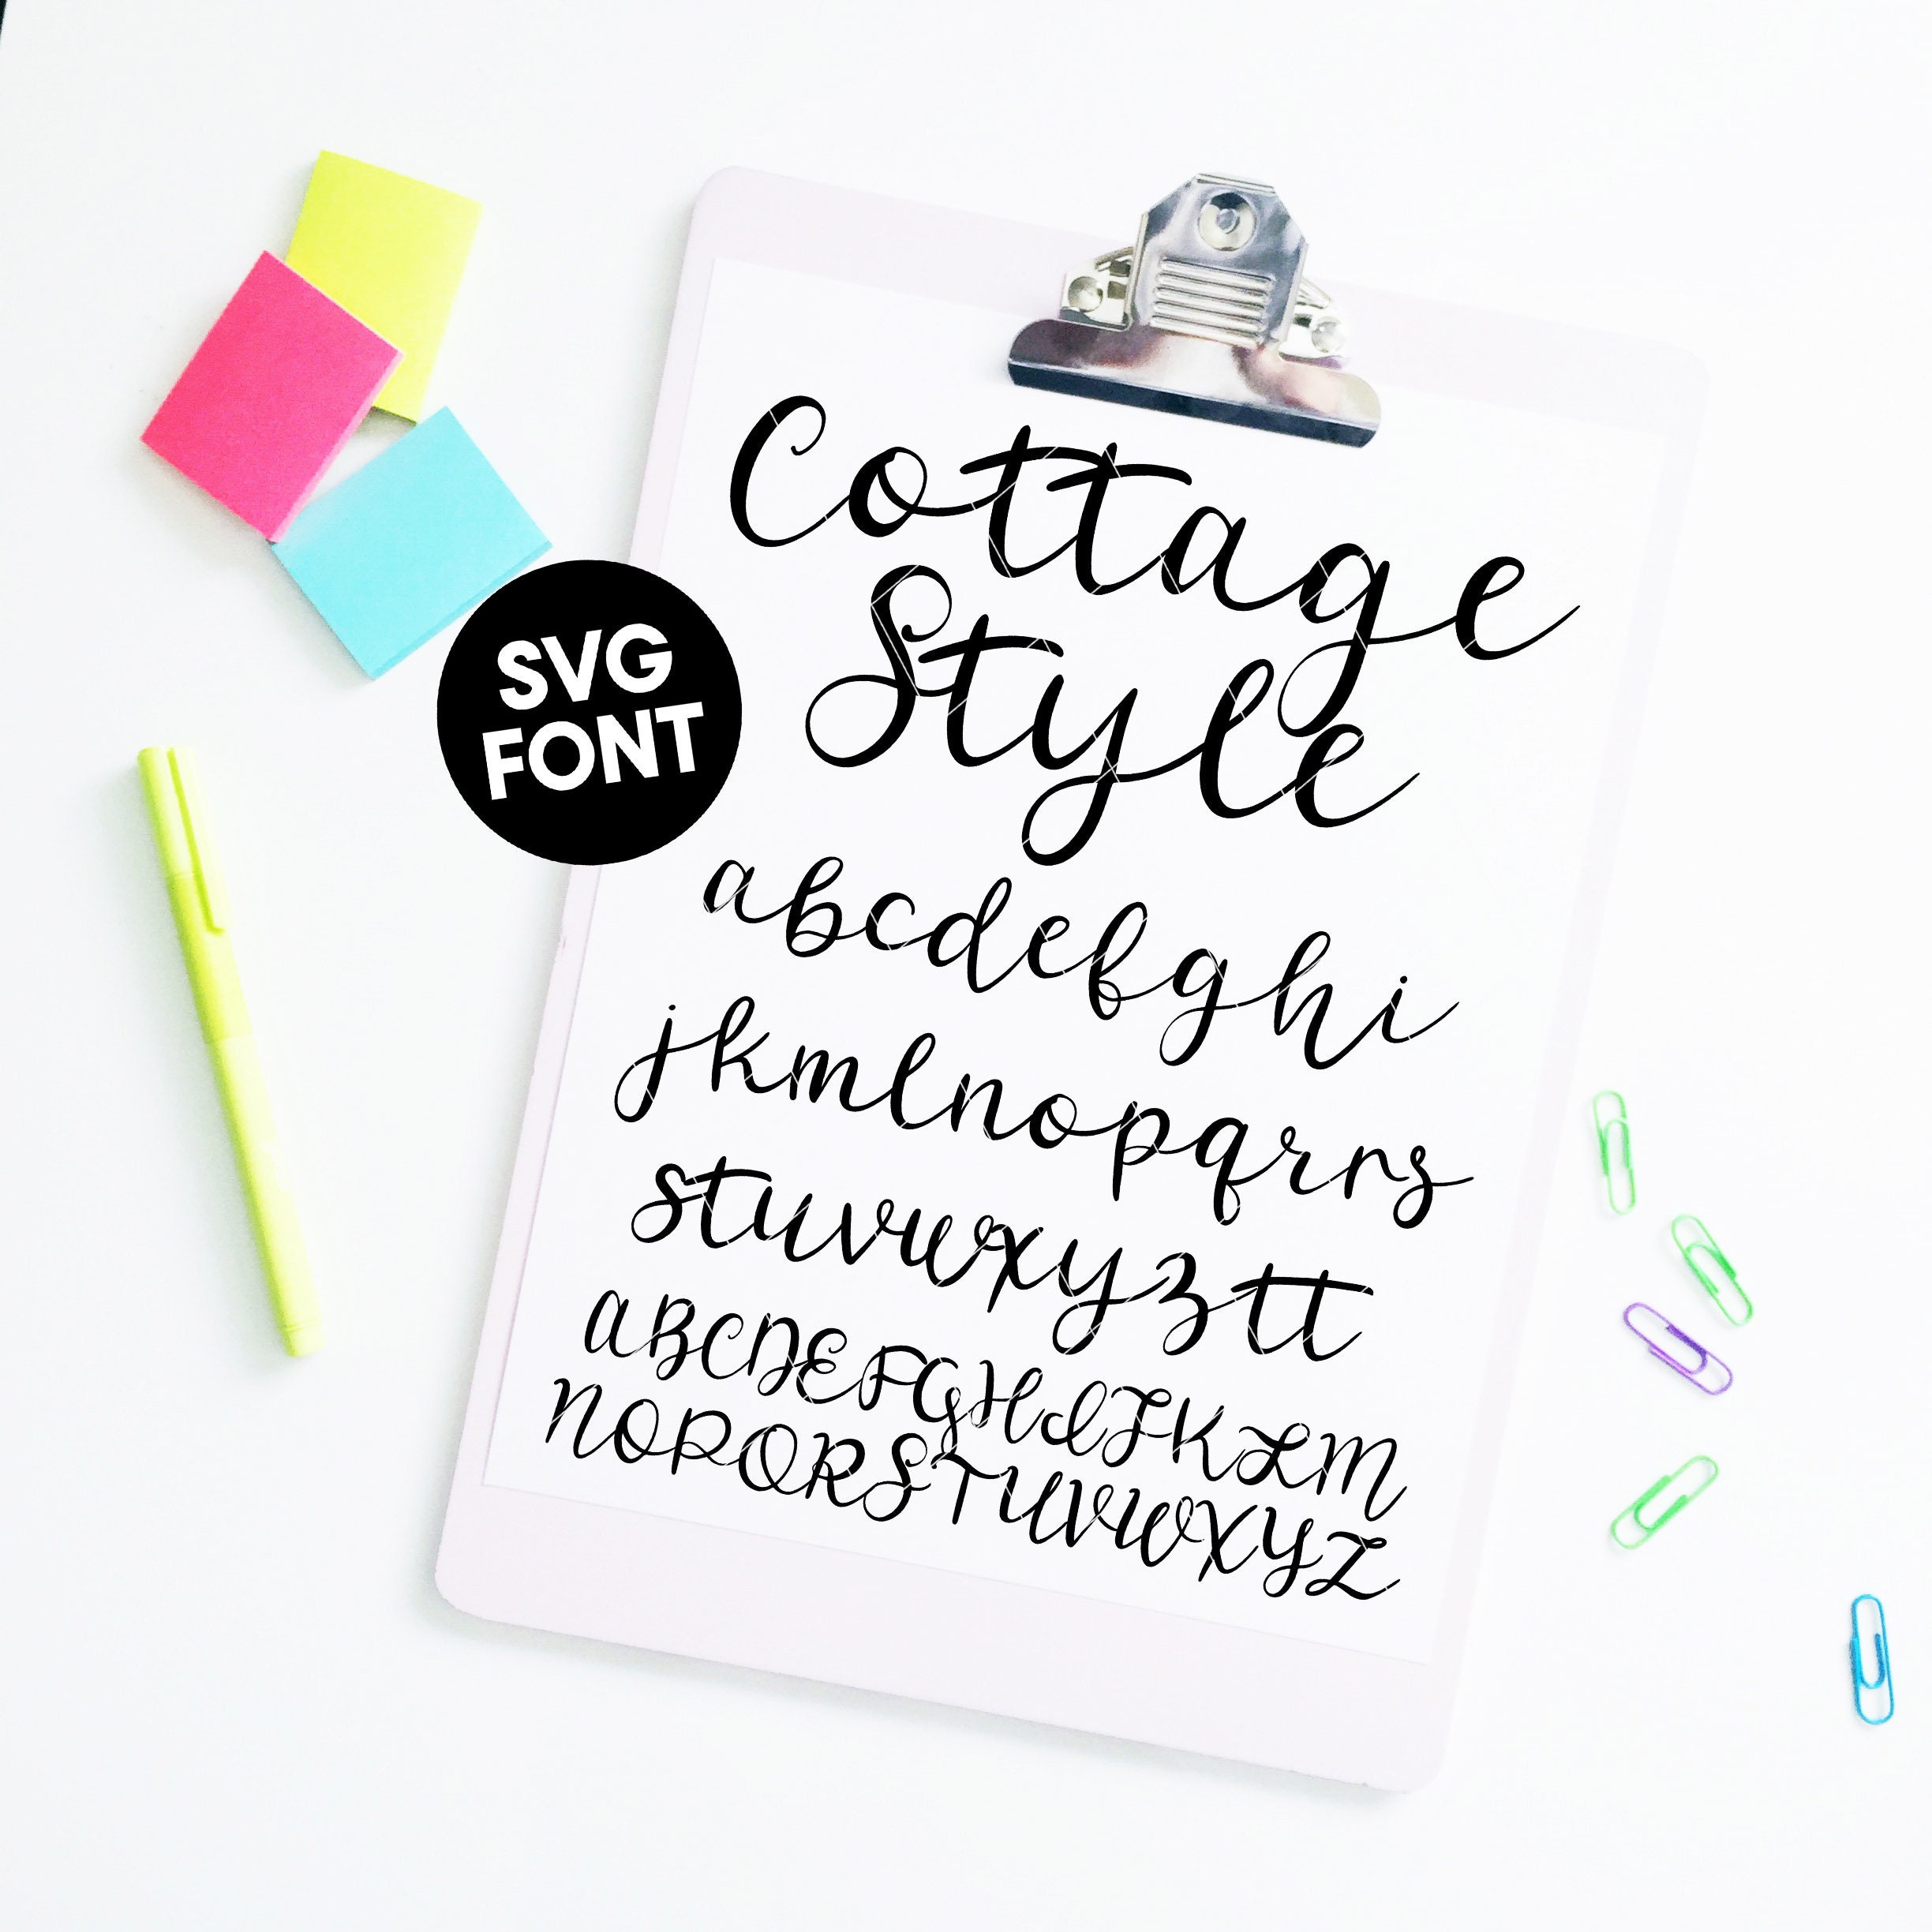 Cottage
Style
SVG
FONT
abcdefghi
jkmlnopqrrs
stuvwxyztt
ABCDEFGHIJKLM
NOPQRSTUVWXYZ